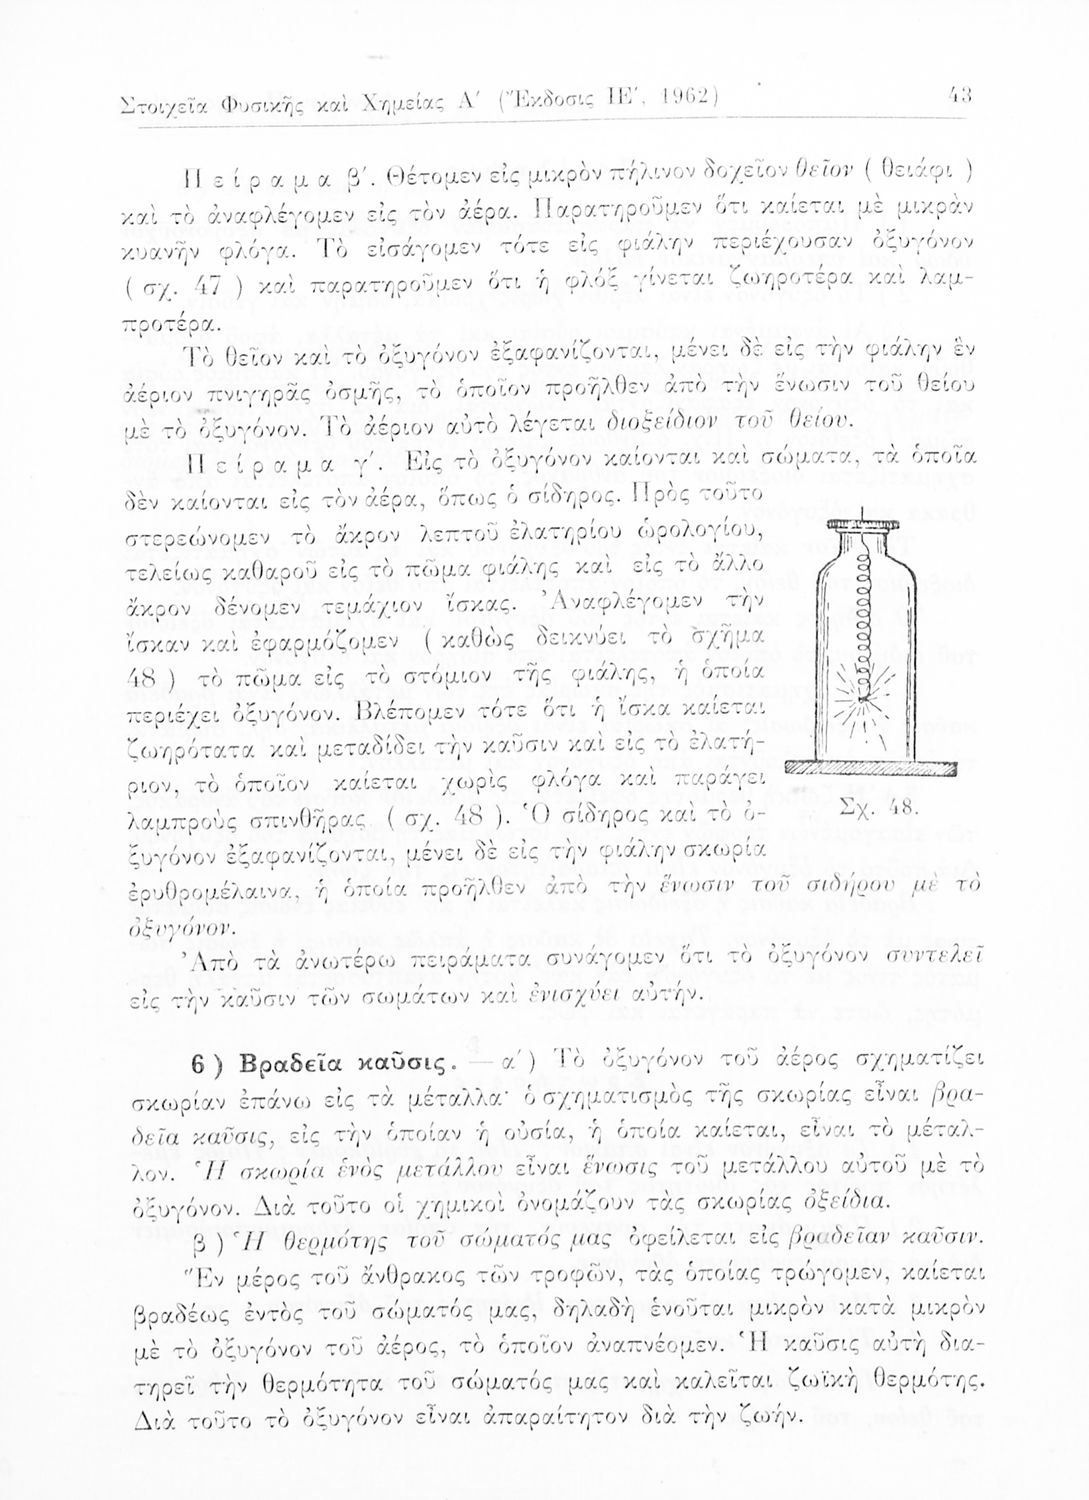 Στοιχεῖα Φυσικῆς καὶ Χημείας Α΄ (Ἔκδοσις ΙΕ΄, 1962) 43
Πείραμα β΄. Θέτομεν εἰς μικρὸν πήλινον δοχεῖον θεῖον ( θειάφι )
καὶ τὸ ἀναφλέγομεν εἰς τὸν ἀέρα. Παρατηροῦμεν ὅτι καίεται μὲ μικρὰν
κυανῆν φλόγα. Τὸ εἰσάγομεν τότε εἰς φιάλην περιέχουσαν ὀξυγόνον
( σχ. 47 ) καὶ παρατηροῦμεν ὅτι ἡ φλὸξ γίνεται ζωηροτέρα καὶ λαμ-
προτέρα.
Τὸ θεῖον καὶ τὸ ὀξυγόνον ἐξαφανίζονται, μένει δὲ εἰς τὴν φιάλην ἓν
ἀέριον πνιγηρᾶς ὀσμῆς, τὸ ὁποῖον προῆλθεν ἀπὸ τὴν ἕνωσιν τοῦ θείου
μὲ τὸ ὀξυγόνον. Τὸ ἀέριον αὐτὸ λέγεται διοξείδιον τοῦ θείου.
Πείραμα γ΄. Εἰς τὸ ὀξυγόνον καίονται καὶ σώματα, τὰ ὁποῖα
δὲν καίονται εἰς τὸν ἀέρα, ὅπως ὁ σίδηρος. Πρὸς τοῦτο
στερεώνομεν τὸ ἄκρον λεπτοῦ ἐλατηρίου ὡρολογίου,
τελείως καθαροῦ εἰς τὸ πῶμα φιάλης καὶ εἰς τὸ ἄλλο
ἄκρον δένομεν τεμάχιον ἴσκας. Ἀναφλέγομεν τὴν
ἴσκαν καὶ ἐφαρμόζομεν ( καθὼς δεικνύει τὸ σχῆμα
48 ) τὸ πῶμα εἰς τὸ στόμιον τῆς φιάλης, ἡ ὁποία
περιέχει ὀξυγόνον. Βλέπομεν τότε ὅτι ἡ ἴσκα καίεται
ζωηρότατα καὶ μεταδίδει τὴν καῦσιν καὶ εἰς τὸ ἐλατή-
ριον, τὸ ὁποῖον καίεται χωρὶς φλόγα καὶ παράγει
λαμπροὺς σπινθῆρας ( σχ. 48 ). Ὁ σίδηρος καὶ τὸ ὀ-
ξυγόνον ἐξαφανίζονται, μένει δὲ εἰς τὴν φιάλην σκωρία
ἐρυθρομέλαινα, ἡ ὁποία προῆλθεν ἀπὸ τὴν ἕνωσιν τοῦ σιδήρου μὲ τὸ
ὀξυγόνον.
Σχ. 48.
Ἀπὸ τὰ ἀνωτέρω πειράματα συνάγομεν ὅτι τὸ ὀξυγόνον συντελεῖ
εἰς τὴν καῦσιν τῶν σωμάτων καὶ ἐνισχύει αὐτήν.
6 ) Βραδεῖα καῦσις. — α΄ ) Τὸ ὀξυγόνον τοῦ ἀέρος σχηματίζει
σκωρίαν ἐπάνω εἰς τὰ μέταλλα· ὁ σχηματισμὸς τῆς σκωρίας εἶναι βρα-
δεῖα καῦσις, εἰς τὴν ὁποίαν ἡ οὐσία, ἡ ὁποία καίεται, εἶναι τὸ μέταλ-
λον. Ἡ σκωρία ἑνὸς μετάλλου εἶναι ἕνωσις τοῦ μετάλλου αὐτοῦ μὲ τὸ
ὀξυγόνον. Διὰ τοῦτο οἱ χημικοὶ ὀνομάζουν τὰς σκωρίας ὀξείδια.
β ) Ἡ θερμότης τοῦ σώματός μας ὀφείλεται εἰς βραδεῖαν καῦσιν.
Ἓν μέρος τοῦ ἄνθρακος τῶν τροφῶν, τὰς ὁποίας τρώγομεν, καίεται
βραδέως ἐντὸς τοῦ σώματός μας, δηλαδὴ ἑνοῦται μικρὸν κατὰ μικρὸν
μὲ τὸ ὀξυγόνον τοῦ ἀέρος, τὸ ὁποῖον ἀναπνέομεν. Ἡ καῦσις αὐτὴ δια-
τηρεῖ τὴν θερμότητα τοῦ σώματός μας καὶ καλεῖται ζωϊκὴ θερμότης.
Διὰ τοῦτο τὸ ὀξυγόνον εἶναι ἀπαραίτητον διὰ τὴν ζωήν.